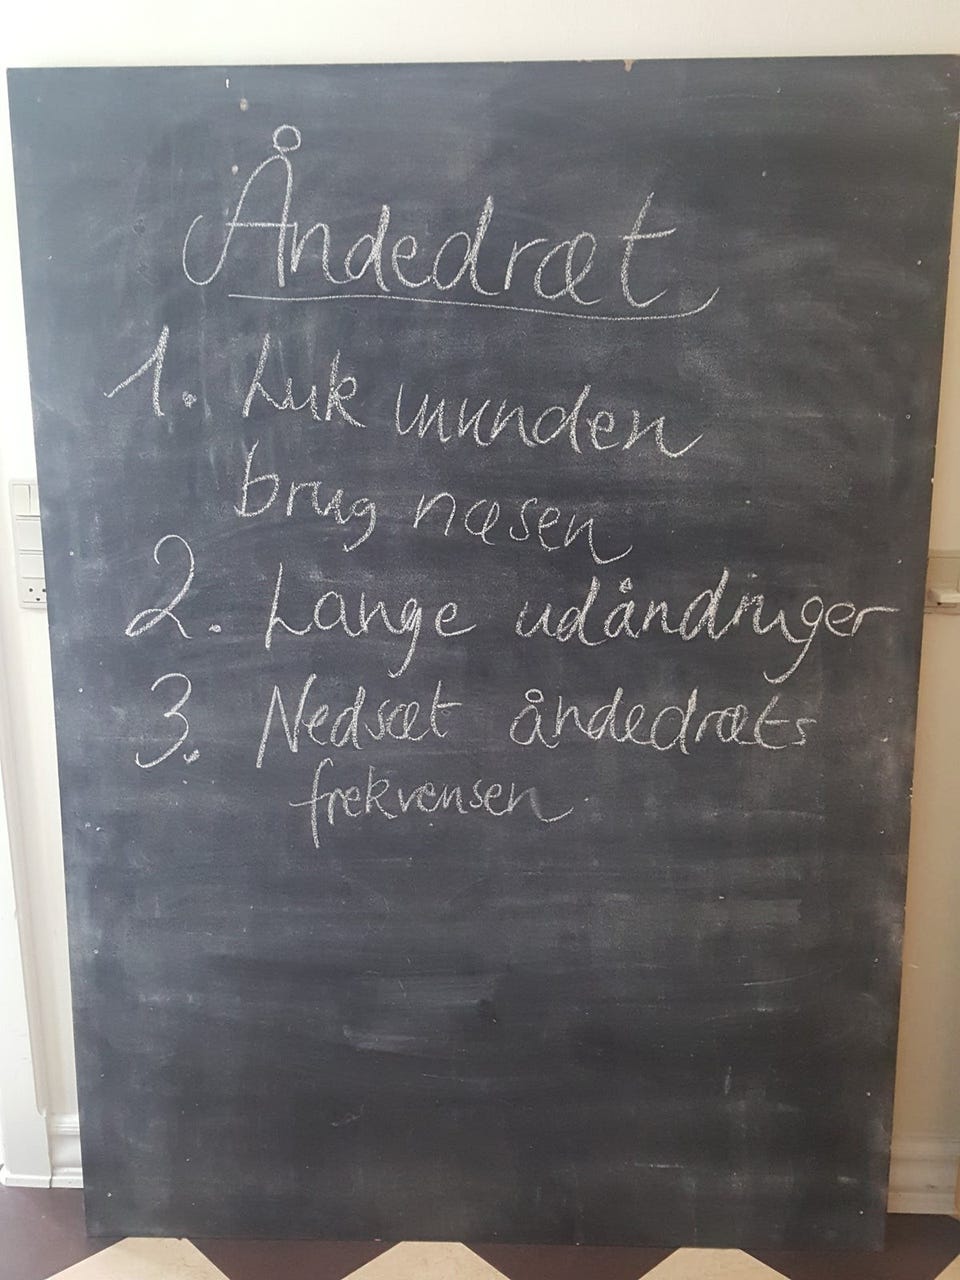 Åndedræt
1. Luk munden
brug næsen
2. Lange udåndinger
3. Nedsæt åndedræts
frekvensen